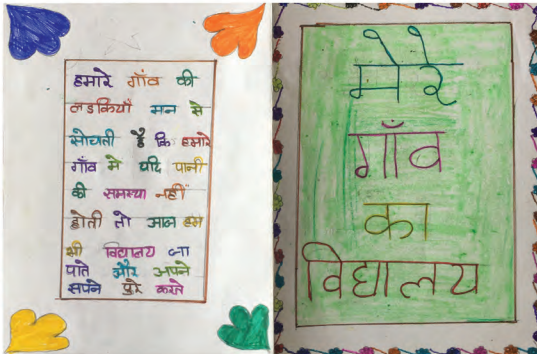 हमारे गाँव की
लडकियाँ मन से
सोचती है कि हमारे
गाँव मे यदि पानी
की समस्या नहीं
होती तो आज हम
भी विद्यालय जा
पाते और अपने
सपने पुरे करते
मेरे
गाँव
का
विद्यालय